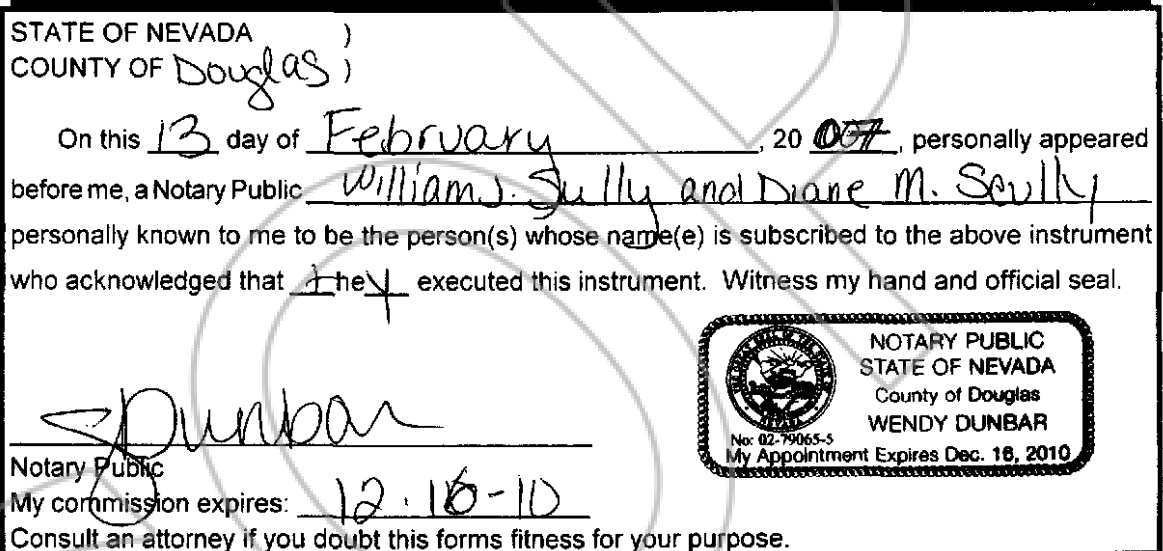 STATE OF NEVADA )
COUNTY OF Douglas )
On this 13 day of February, 20 007, personally appeared
before me, a Notary Public William J. Sully and Diane M. Scully
personally known to me to be the person(s) whose name(e) is subscribed to the above instrument
who acknowledged that they executed this instrument. Witness my hand and official seal.
NOTARY PUBLIC
STATE OF NEVADA
County of Douglas
WENDY DUNBAR
No: 02-79065-5
My Appointment Expires Dec. 16, 2010
Dunbar
Notary Public
My commission expires: 12-16-10
Consult an attorney if you doubt this forms fitness for your purpose.